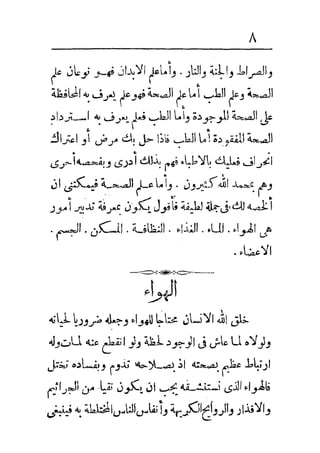 ٨
والصراط والجنة والنار . وأما علم الابدان فهو نوعان علم
الصحة وعلم الطب أما علم الصحة فهو علم يعرف به المحافظة
على الصحة الموجودة وأما الطب فعلم يعرف به استرداد
الصحة المفقودة أما الطب فاذا حل بك مرض أو اعتراك
انحراف فعليك بالاطباء فهم بذلك أدرى وبفحصه أحرى
وهم بحمد الله كثيرون . وأما علم الصحة فيمكننى ان
ألخصه لك فى جملة لطيفة فأقول يكون بمعرفة تدبير أمور
هى الهواء . الماء . الغذاء . النظافة . المسكن . الجسم .
الاعضاء .
الهواء
خلق الله الانسان محتاجا للهواء وجعله ضروريا لحياته
ولولاه لما عاش فى الوجود لحظة ولو انقطع عنه لمات وله
ارتباط عظيم بصحته اذ بصلاحه تدوم وبفساده تختل
فالهواء الذى نستنشقه يجب ان يكون نقيا من الجراثيم
والاقذار والروائح الكريهة وأنفاس الناس المختلطة به فينبغى